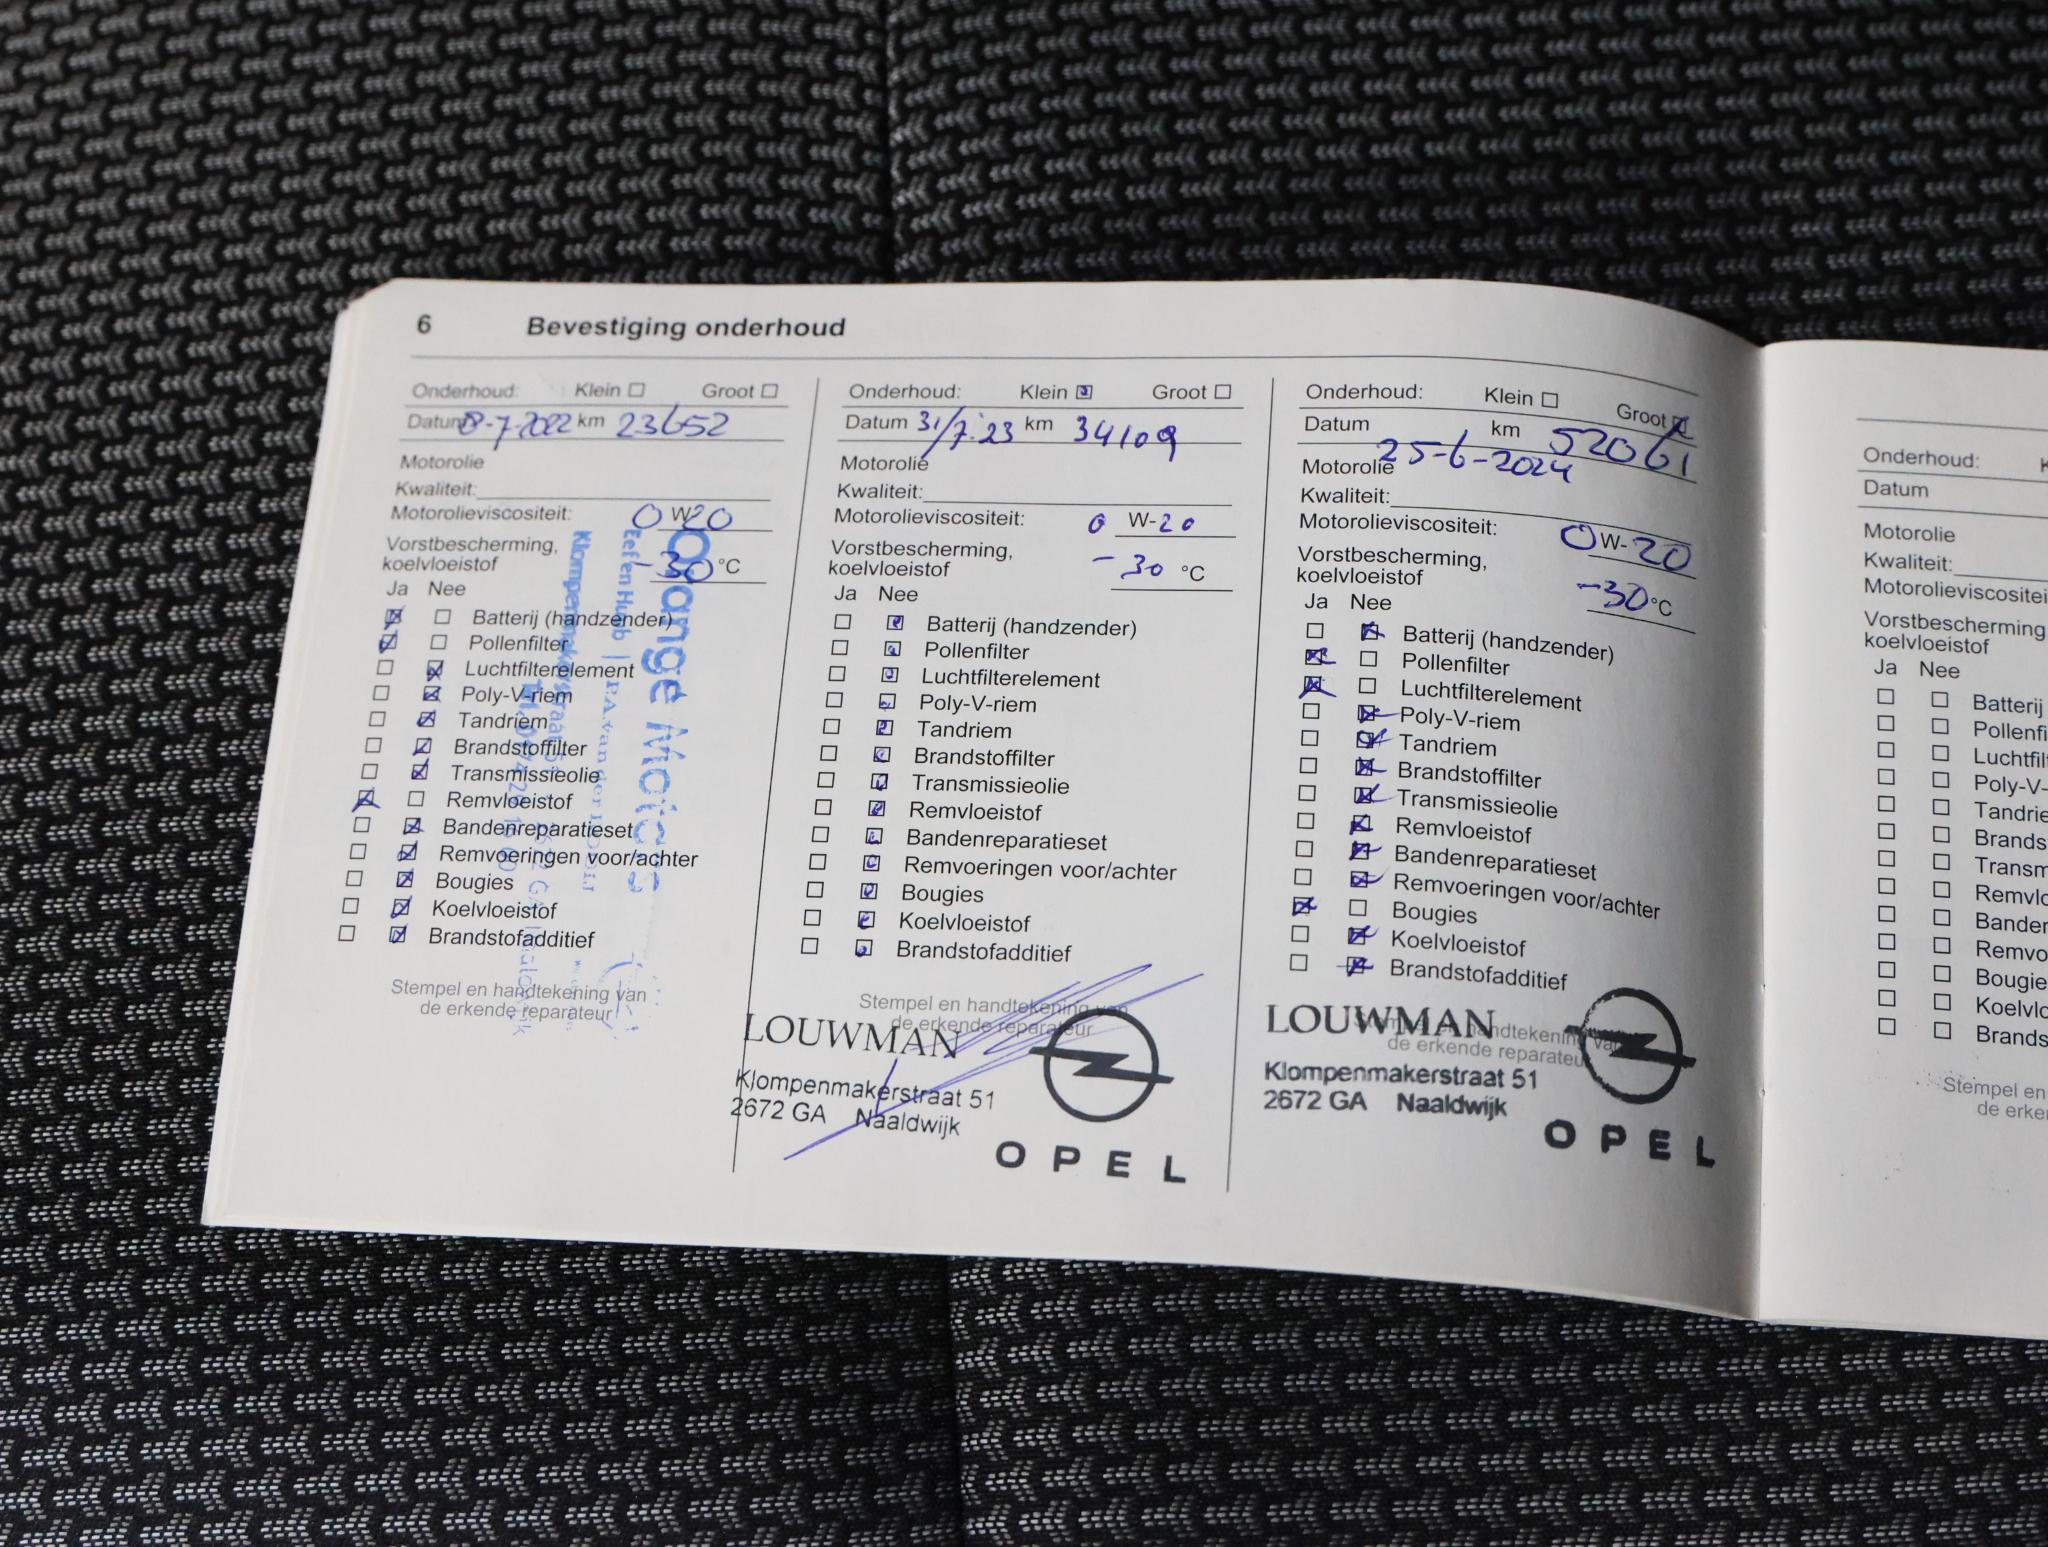 6 Bevestiging onderhoud
Onderhoud: Klein Groot
Datum 8-7-2022 km 23652
Motorolie
Kwaliteit:
Motorolieviscositeit: 0 W 20
Vorstbescherming,
koelvloeistof -30 °C
Ja Nee
Batterij (handzender)
Pollenfilter
Luchtfilterelement
Poly-V-riem
Tandriem
Brandstoffilter
Transmissieolie
Remvloeistof
Bandenreparatieset
Remvoeringen voor/achter
Bougies
Koelvloeistof
Brandstofadditief
Stempel en handtekening van
de erkende reparateur
Onderhoud: Klein Groot
Datum 31/7-23 km 34109
Motorolie
Kwaliteit:
Motorolieviscositeit: 0 W-20
Vorstbescherming,
koelvloeistof -30 °C
Ja Nee
Batterij (handzender)
Pollenfilter
Luchtfilterelement
Poly-V-riem
Tandriem
Brandstoffilter
Transmissieolie
Remvloeistof
Bandenreparatieset
Remvoeringen voor/achter
Bougies
Koelvloeistof
Brandstofadditief
Stempel en handtekening van
de erkende reparateur
LOUWMAN
Klompenmakerstraat 51
2672 GA Naaldwijk
OPEL
Onderhoud: Klein Groot
Datum 25-6-2024 km 52061
Motorolie
Kwaliteit:
Motorolieviscositeit: 0 W-20
Vorstbescherming,
koelvloeistof -30 °C
Ja Nee
Batterij (handzender)
Pollenfilter
Luchtfilterelement
Poly-V-riem
Tandriem
Brandstoffilter
Transmissieolie
Remvloeistof
Bandenreparatieset
Remvoeringen voor/achter
Bougies
Koelvloeistof
Brandstofadditief
Stempel en handtekening van
de erkende reparateur
LOUWMAN
Klompenmakerstraat 51
2672 GA Naaldwijk
OPEL
Onderhoud: K
Datum
Motorolie
Kwaliteit:
Motorolieviscositei
Vorstbescherming
koelvloeistof
Ja Nee
Batterij
Pollenfi
Luchtfil
Poly-V-
Tandrie
Brands
Transm
Remvlo
Banden
Remvo
Bougie
Koelvlo
Brands
Stempel en
de erke